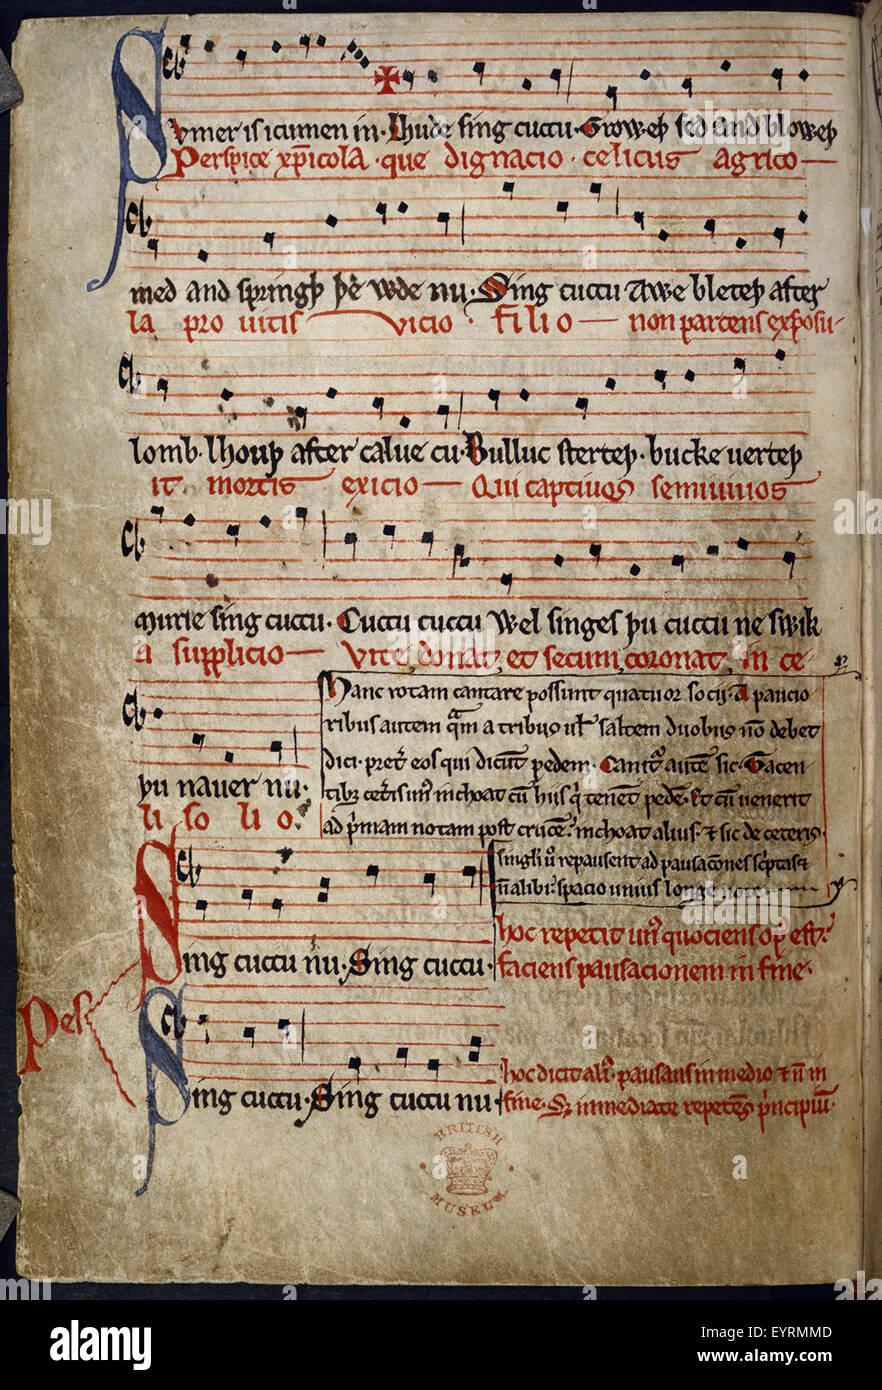 Sumer is icumen in. Lhude sing cuccu. Groweþ sed and bloweþ
Perspice xp̅icola. que dignacio. celicus agrico—
med and springþ þe wde nu. Sing cuccu Awe bleteþ after
la pro uitis vicio. filio— non parcens exposu-
lomb. lhouþ after calue cu. Bulluc sterteþ. bucke uerteþ
it mortis exicio— Qui captiuos semiuiuos
murie sing cuccu. Cuccu cuccu Wel singes þu cuccu ne swik
a supplicio— Vite donat et secum coronat in ce-
þu nauer nu.
li solio.
Hanc rotam cantare possunt quatuor socij. A paucio
ribus autem q̃m a tribus uł saltem duobus nō debet
dici. pret̾ eos qui dicūt pedem. Canit᷒ autē sic. Tacen
tib᷒ cet̾is un᷒ inchoat cū hijs q̾ tenēt pedē. Et cū uenerit
ad p̾mam notam post crucē. inchoat alius. et sic de ceteris.
singli ū repausent ad pausacōnes sc̾ptas et
n̄ alibi. spacio unius longe note
Pes
Sing cuccu nu. Sing cuccu.
hoc repetit un᷒ quociens op᷒ est.
faciens pausacionem in fine.
Sing cuccu. Sing cuccu nu
hoc dicit ali᷒. pausans in medio et n̄ in
fine. Sꝫ immediate repetēs p̾ncipiū.
BRITISH
MUSEUM
alamy
a
alamy
Image ID: EYRMMD
www.alamy.com